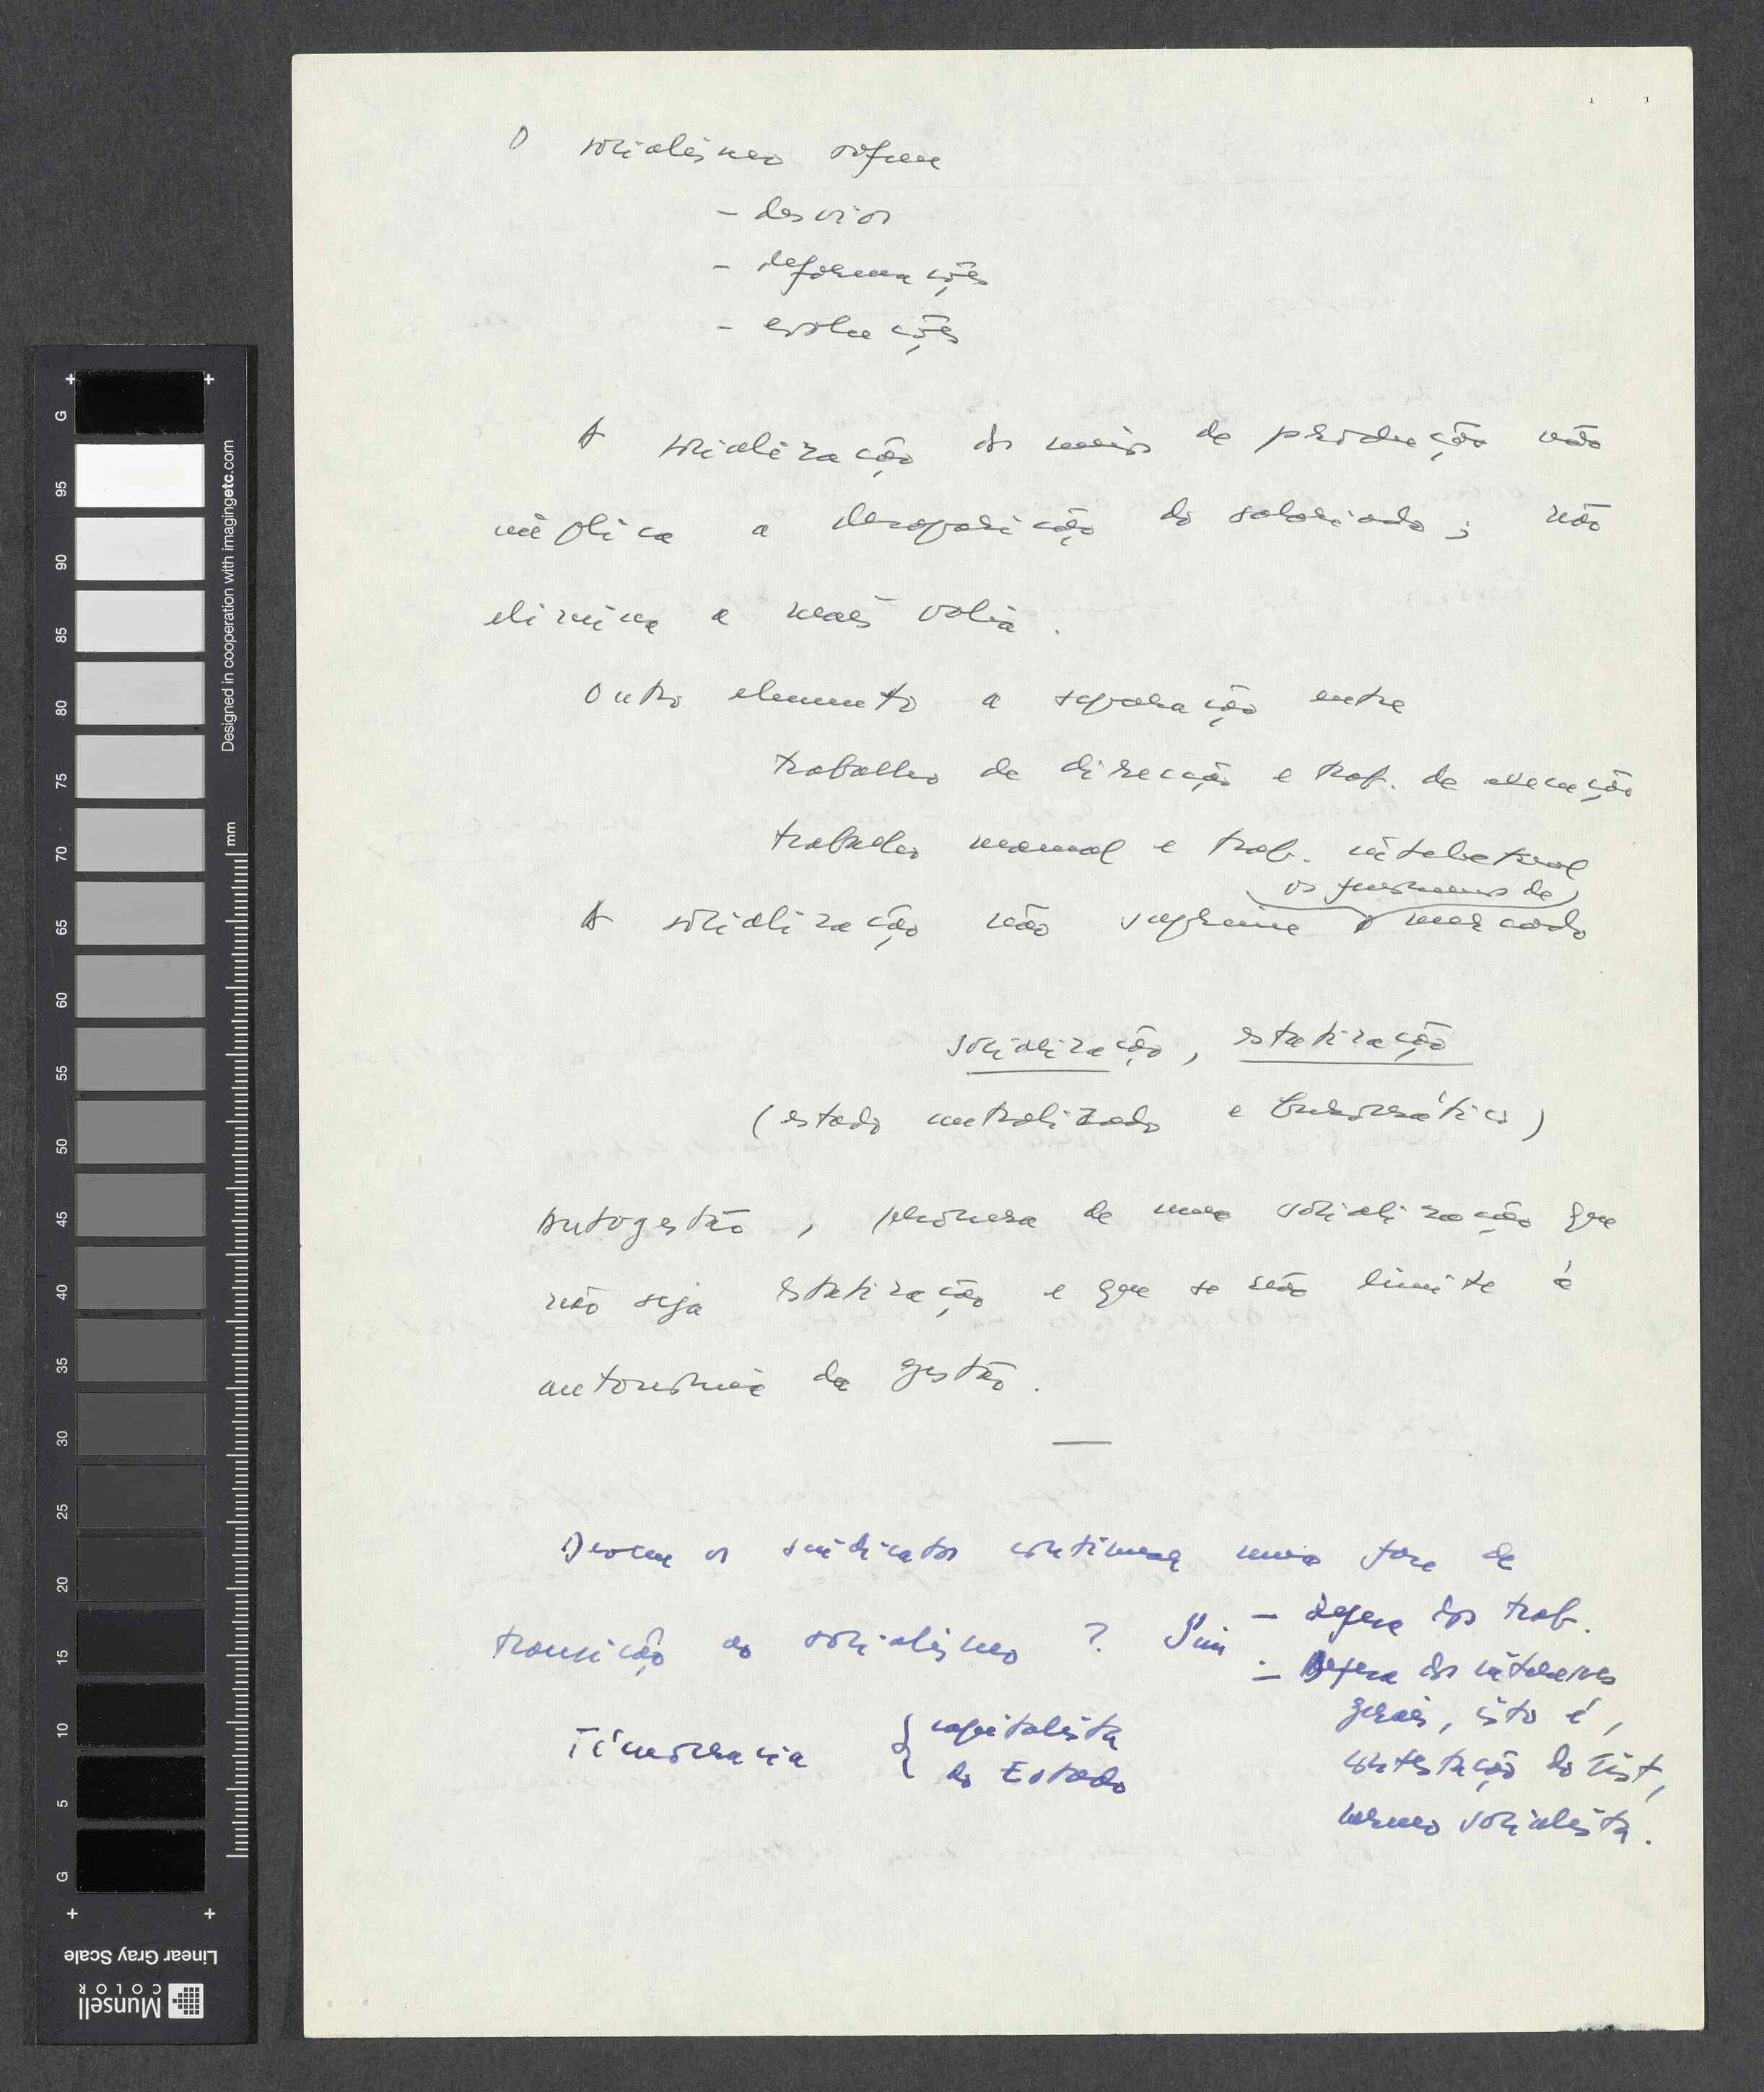 O socialismo sofreu
- desvios
- deformações
- evoluções
A socialização dos meios de produção não
implica a desaparição do salariado; não
elimina a mais valia.
Outro elemento a separação entre
trabalho de direcção e trab. de execução
trabalho manual e trab. intelectual
os fenómenos de
A socialização não suprime o mercado
socialização, estatização
(estado centralizado e burocrático)
Autogestão, procura de uma socialização que
não seja estatização e que se não limite à
autonomia da gestão.
Devem os sindicatos continuar numa fase de
transição ao socialismo? Sim - defesa dos trab.
- Defesa dos interesses
gerais, isto é,
contestação do Sist,
mesmo socialista.
Técnocracia { capitalista
do Estado
G
95
90
85
80
75
70
65
60
55
50
45
40
35
30
25
20
15
10
5
G
mm
Designed in cooperation with imagingetc.com
Linear Gray Scale
Munsell
COLOR